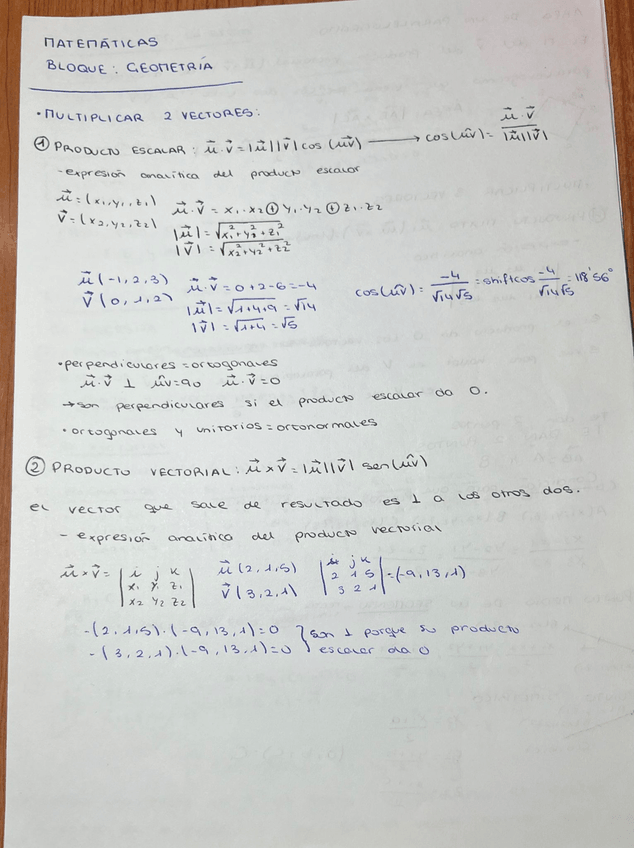 MATEMÁTICAS
BLOQUE: GEOMETRÍA
• MULTIPLICAR 2 VECTORES:
① PRODUCTO ESCALAR: u⃗ · v⃗ = |u⃗| |v⃗| cos (u⃗v⃗) ⟶ cos(ûv) = u⃗ · v⃗ / |u⃗||v⃗|
- expresión analítica del producto escalar
u⃗ = (x₁, y₁, z₁)
v⃗ = (x₂, y₂, z₂)
u⃗ · v⃗ = x₁ · x₂ ⊕ y₁ · y₂ ⊕ z₁ · z₂
|u⃗| = √x₁² + y₂² + z₁²
|v⃗| = √x₂² + y₂² + z₂²
u⃗ (-1, 2, 3)
v⃗ (0, 1, 2)
u⃗ · v⃗ = 0 + 2 - 6 = -4
|u⃗| = √1+4+9 = √14
|v⃗| = √1+4 = √5
cos(ûv) = -4 / √14 √5 = shift cos -4 / √14 √5 = 118'56°
• perpendiculares = ortogonales
u⃗ · v⃗ ⊥ ûv = 90 u⃗ · v⃗ = 0
→ son perpendiculares si el producto escalar da 0.
• ortogonales y unitarios = ortonormales
② PRODUCTO VECTORIAL: u⃗ × v⃗ = |u⃗| |v⃗| sen (ûv)
el vector que sale de resultado es ⊥ a los otros dos.
- expresión analítica del producto vectorial
u⃗ × v⃗ = | i j k
x₁ y₁ z₁
x₂ y₂ z₂ |
u⃗ (2, 1, 5)
v⃗ (3, 2, 1)
| i j k
2 1 5
3 2 1 | = (-9, 13, 1)
- (2, 1, 5) · (-9, 13, 1) = 0 } son ⊥ porque su producto
- (3, 2, 1) · (-9, 13, 1) = 0 } escalar da 0